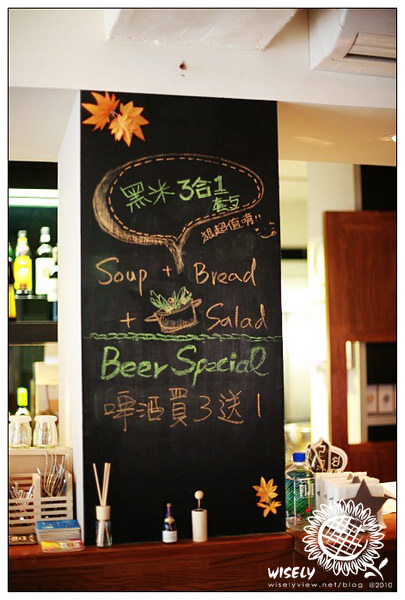 黑米 3合1
套餐
狠超值唷!!
Soup + Bread
+ Salad
Beer Special
啤酒買3送1
WISELY
wiselyview.net/blog @2010